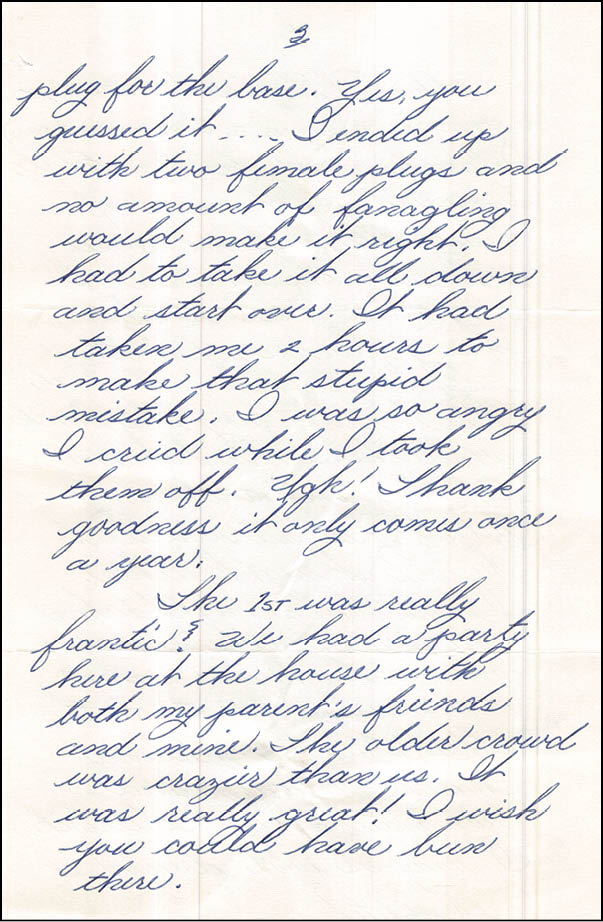 3
plug for the base. Yes, you
guessed it .... I ended up
with two female plugs and
no amount of fanagling
would make it right. I
had to take it all down
and start over. It had
taken me 2 hours to
make that stupid
mistake. I was so angry
I cried while I took
them off. Ygh! Thank
goodness it only comes once
a year.
The 1ST was really
frantic! We had a party
here at the house with
both my parent's friends
and mine. The older crowd
was crazier than us. It
was really great! I wish
you could have been
there.